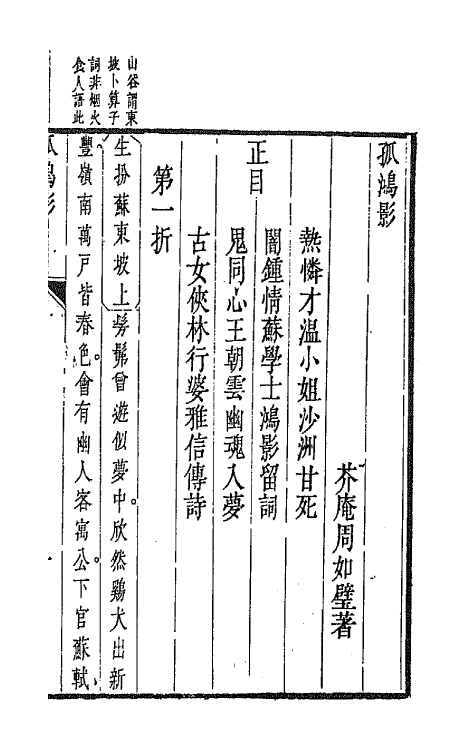 孤鴻影
芥庵周如璧著
正目
熱憐才温小姐沙洲甘死
闇鍾情蘇學士鴻影留詞
鬼同心王朝雲幽魂入夢
古女俠林行婆雅信傳詩
第一折
山谷謂東
坡卜算子
詞非烟火
食人語此
生扮蘇東坡上髣髴曾遊似夢中。欣然鷄犬出新
豐嶺南萬戶皆春色。會有幽人客寓公。下官蘇軾、
孤鴻影
一